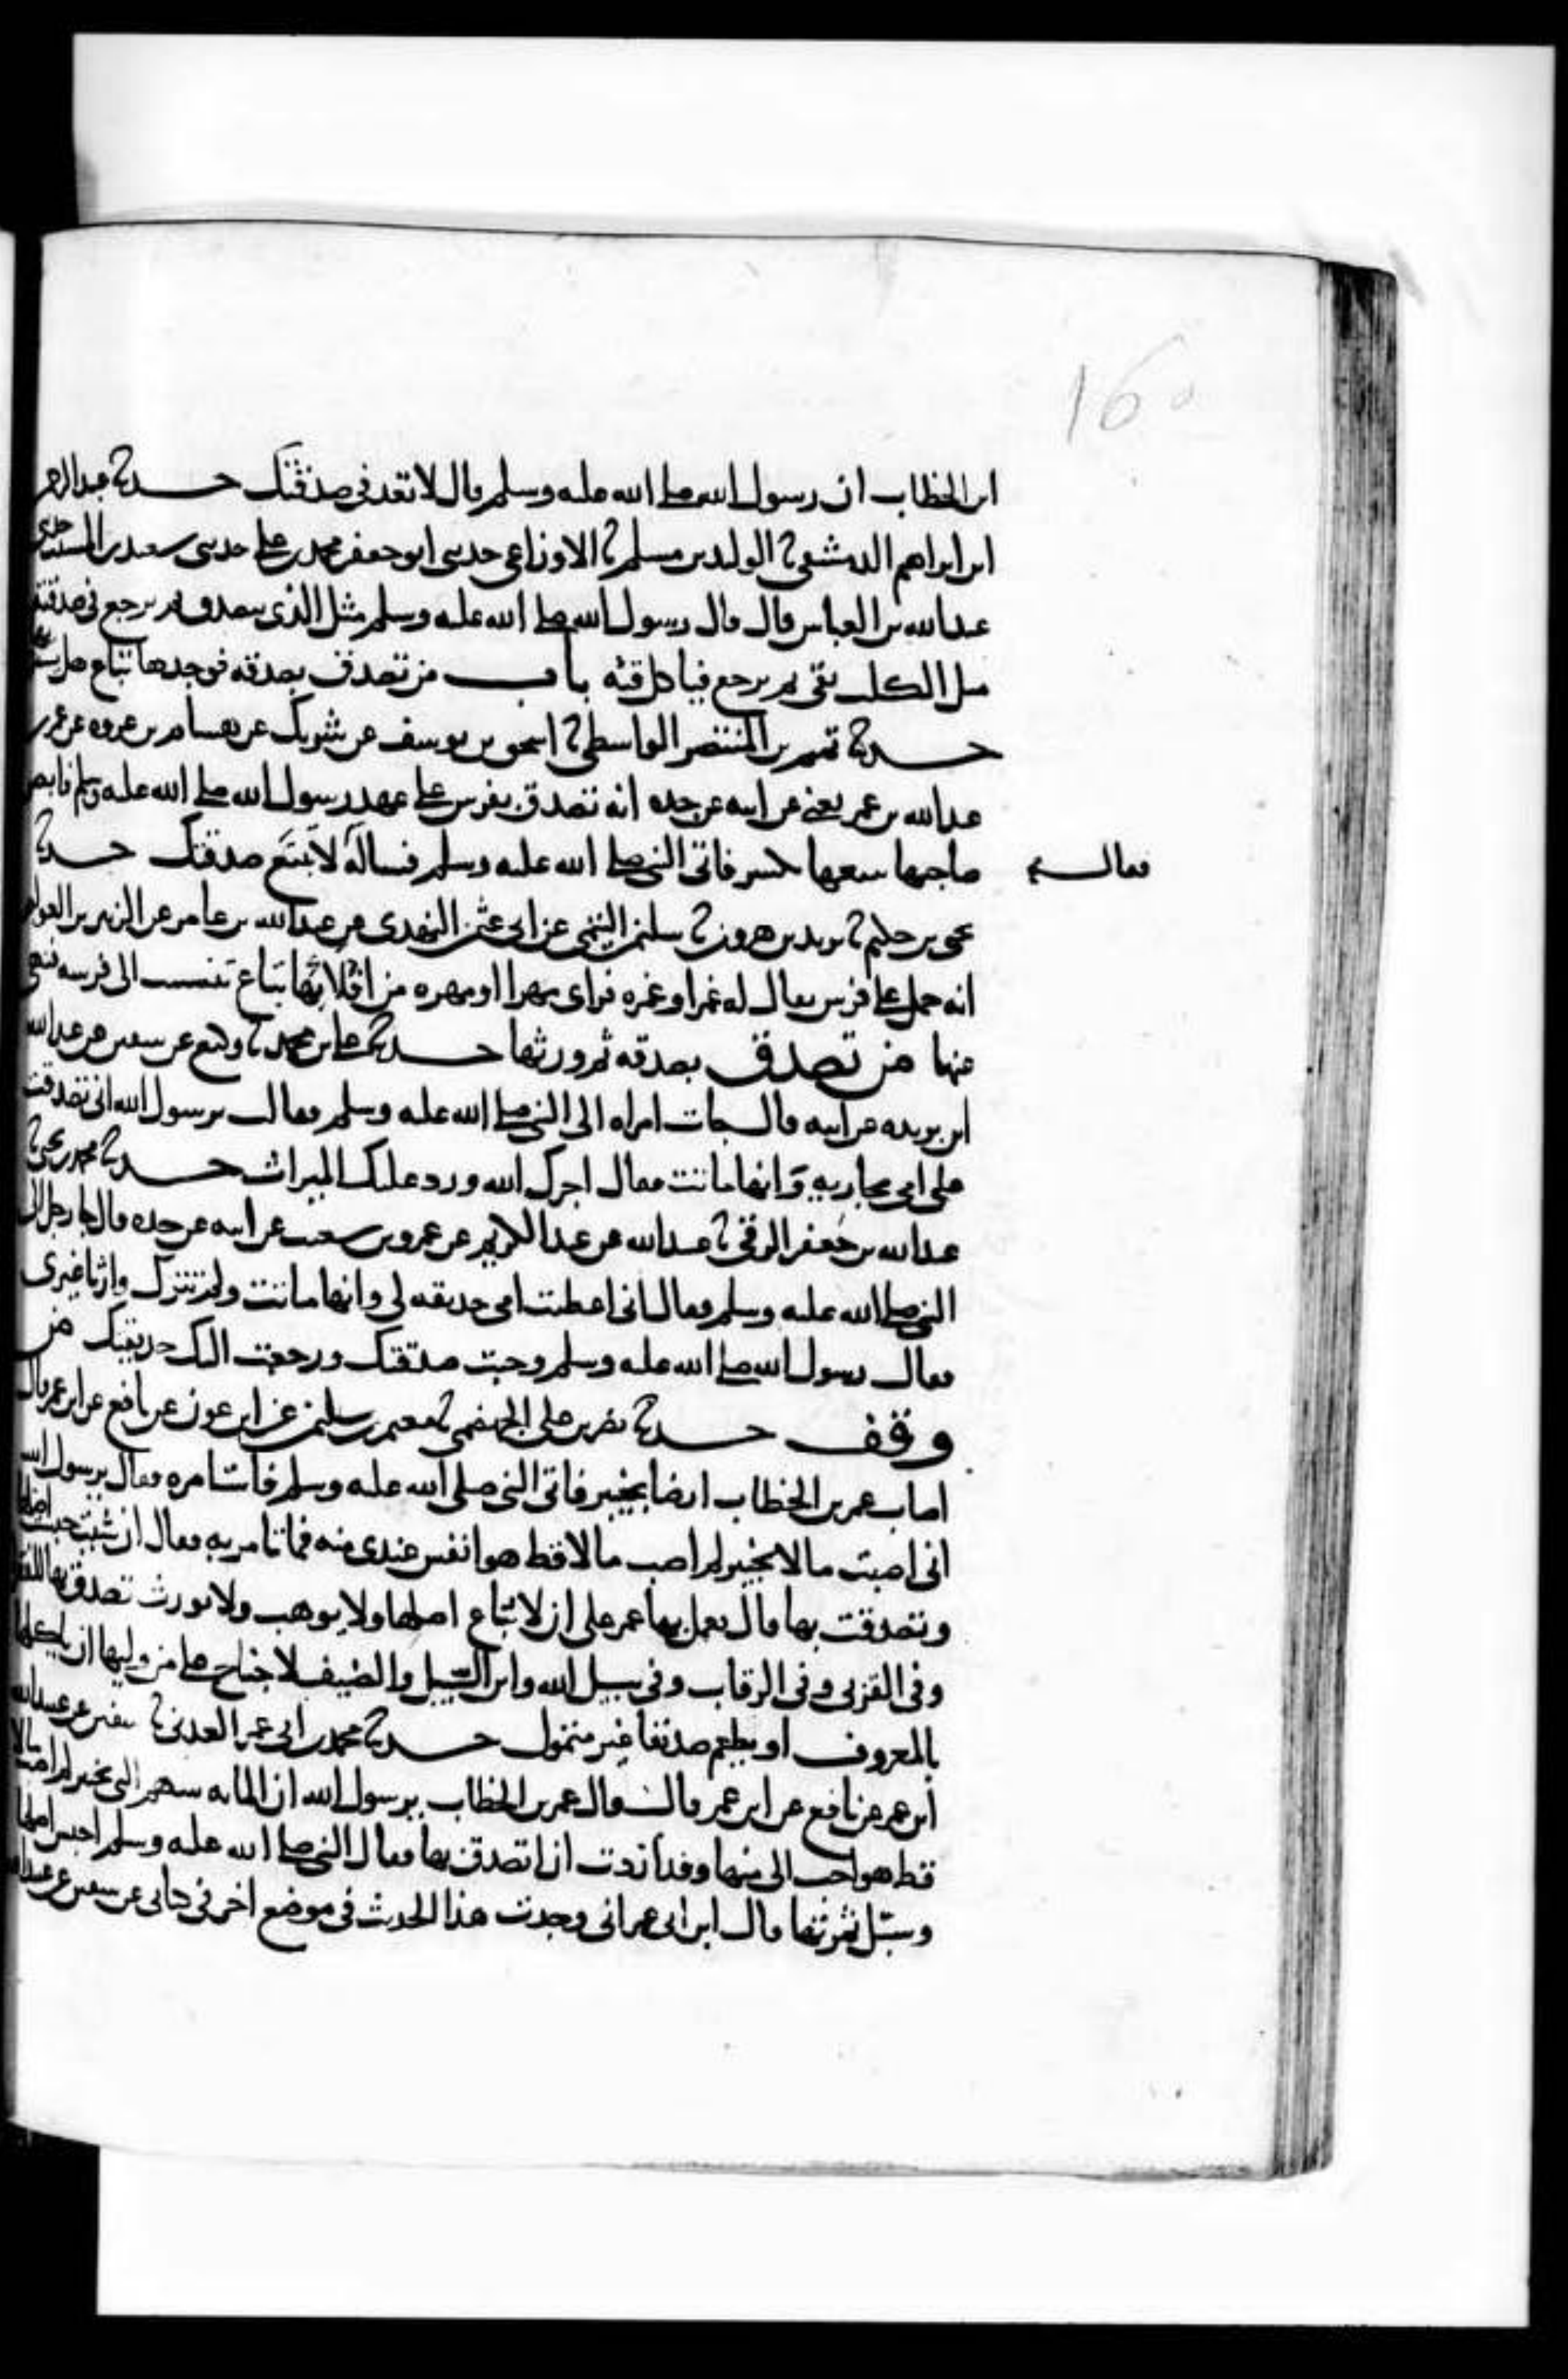 160
ابن الخطاب ان رسول الله صلى الله عليه وسلم قال لا تعد في صدقتك حدثنا عبد الرحمن
ابن ابراهيم الدمشقي نا الوليد بن مسلم نا الاوزاعي حدثني ابو جعفر محمد بن علي حدثني سعيد بن المسيب حدثني
عبد الله بن العباس قال قال رسول الله صلى الله عليه وسلم مثل الذي يتصدق ثم يرجع في صدقته
مثل الكلب يقئ ثم يرجع فياكل قئه باب من تصدق بصدقة فوجدها تباع هل يشتريها
حدثنا تميم بن المنتصر الواسطي نا اسحق بن يوسف عن شريك عن هشام بن عروه عن عمر بن
عبد الله بن عمر يعني عن ابيه عن جده انه تصدق بفرس على عهد رسول الله صلى الله عليه وسلم فابصر
صاحبها يبيعها بكسر فاتى النبي صلى الله عليه وسلم فساله لا تبتع صدقتك حدثنا
فقال
يحيى بن حكيم نا يزيد بن هرون نا سليمن التيمي عن ابي عثمن النهدي عن عبد الله بن عامر عن الزبير بن العوام
انه حمل على فرس يقال له غمر او غمره فراى مهرا او مهره من افلائها تباع تنسب الى فرسه فنهى
عنها من تصدق بصدقه ثم ورثها حدثنا علي بن محمد نا وكيع عن سفين عن عبد الله
ابن بريده عن ابيه قال جات امراه الى النبي صلى الله عليه وسلم فقالت يرسول الله اني تصدقت
على امي بجاريه وانها ماتت فقال اجرك الله ورد عليك الميراث حدثنا محمد بن يحيى نا
عبد الله بن جعفر الرقي نا عبيد الله عن عبد الكريم عن عمرو بن شعيب عن ابيه عن جده قال جا رجل الى
النبي صلى الله عليه وسلم فقال اني اعطيت امي حديقه لي وانها ماتت ولم تترك وارثا غيري
فقال رسول الله صلى الله عليه وسلم وجبت صدقتك ورجعت اليك حديقتك من
وقف حدثنا نصر بن علي الجهضمي نا معتمر بن سليمن عن ابن عون عن نافع عن ابن عمر قال
اصاب عمر بن الخطاب ارضا بخيبر فاتى النبي صلى الله عليه وسلم فاستامره فقال يرسول الله
اني اصبت مالا بخيبر لم اصب مالا قط هو انفس عندي منه فما تامر به فقال ان شئت حبست اصلها
وتصدقت بها قال فعمل بها عمر على ان لا تباع اصلها ولا يوهب ولا يورث تصدق بها للفقرا
وفي القربى وفي الرقاب وفي سبيل الله وابن السبيل والضيف لا جناح على من وليها ان ياكلها
بالمعروف او يطعم صديقا غير متمول حدثنا محمد بن ابي عمر العدني نا سفين عن عبيد الله
ابن عمر عن نافع عن ابن عمر قال قال عمر بن الخطاب يرسول الله ان المايه سهم التي بخيبر لم اصب مالا
قط هو احب الي منها وقد اردت ان اتصدق بها فقال النبي صلى الله عليه وسلم احبس اصلها
وسبل ثمرتها قال ابن ابي عمر اني وجدت هذا الحديث في موضع اخر في كتابي عن سفين عن عبد الله